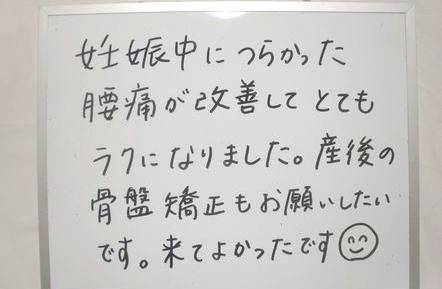 妊娠中につらかった
腰痛が改善してとても
ラクになりました。産後の
骨盤矯正もお願いしたい
です。来てよかったです